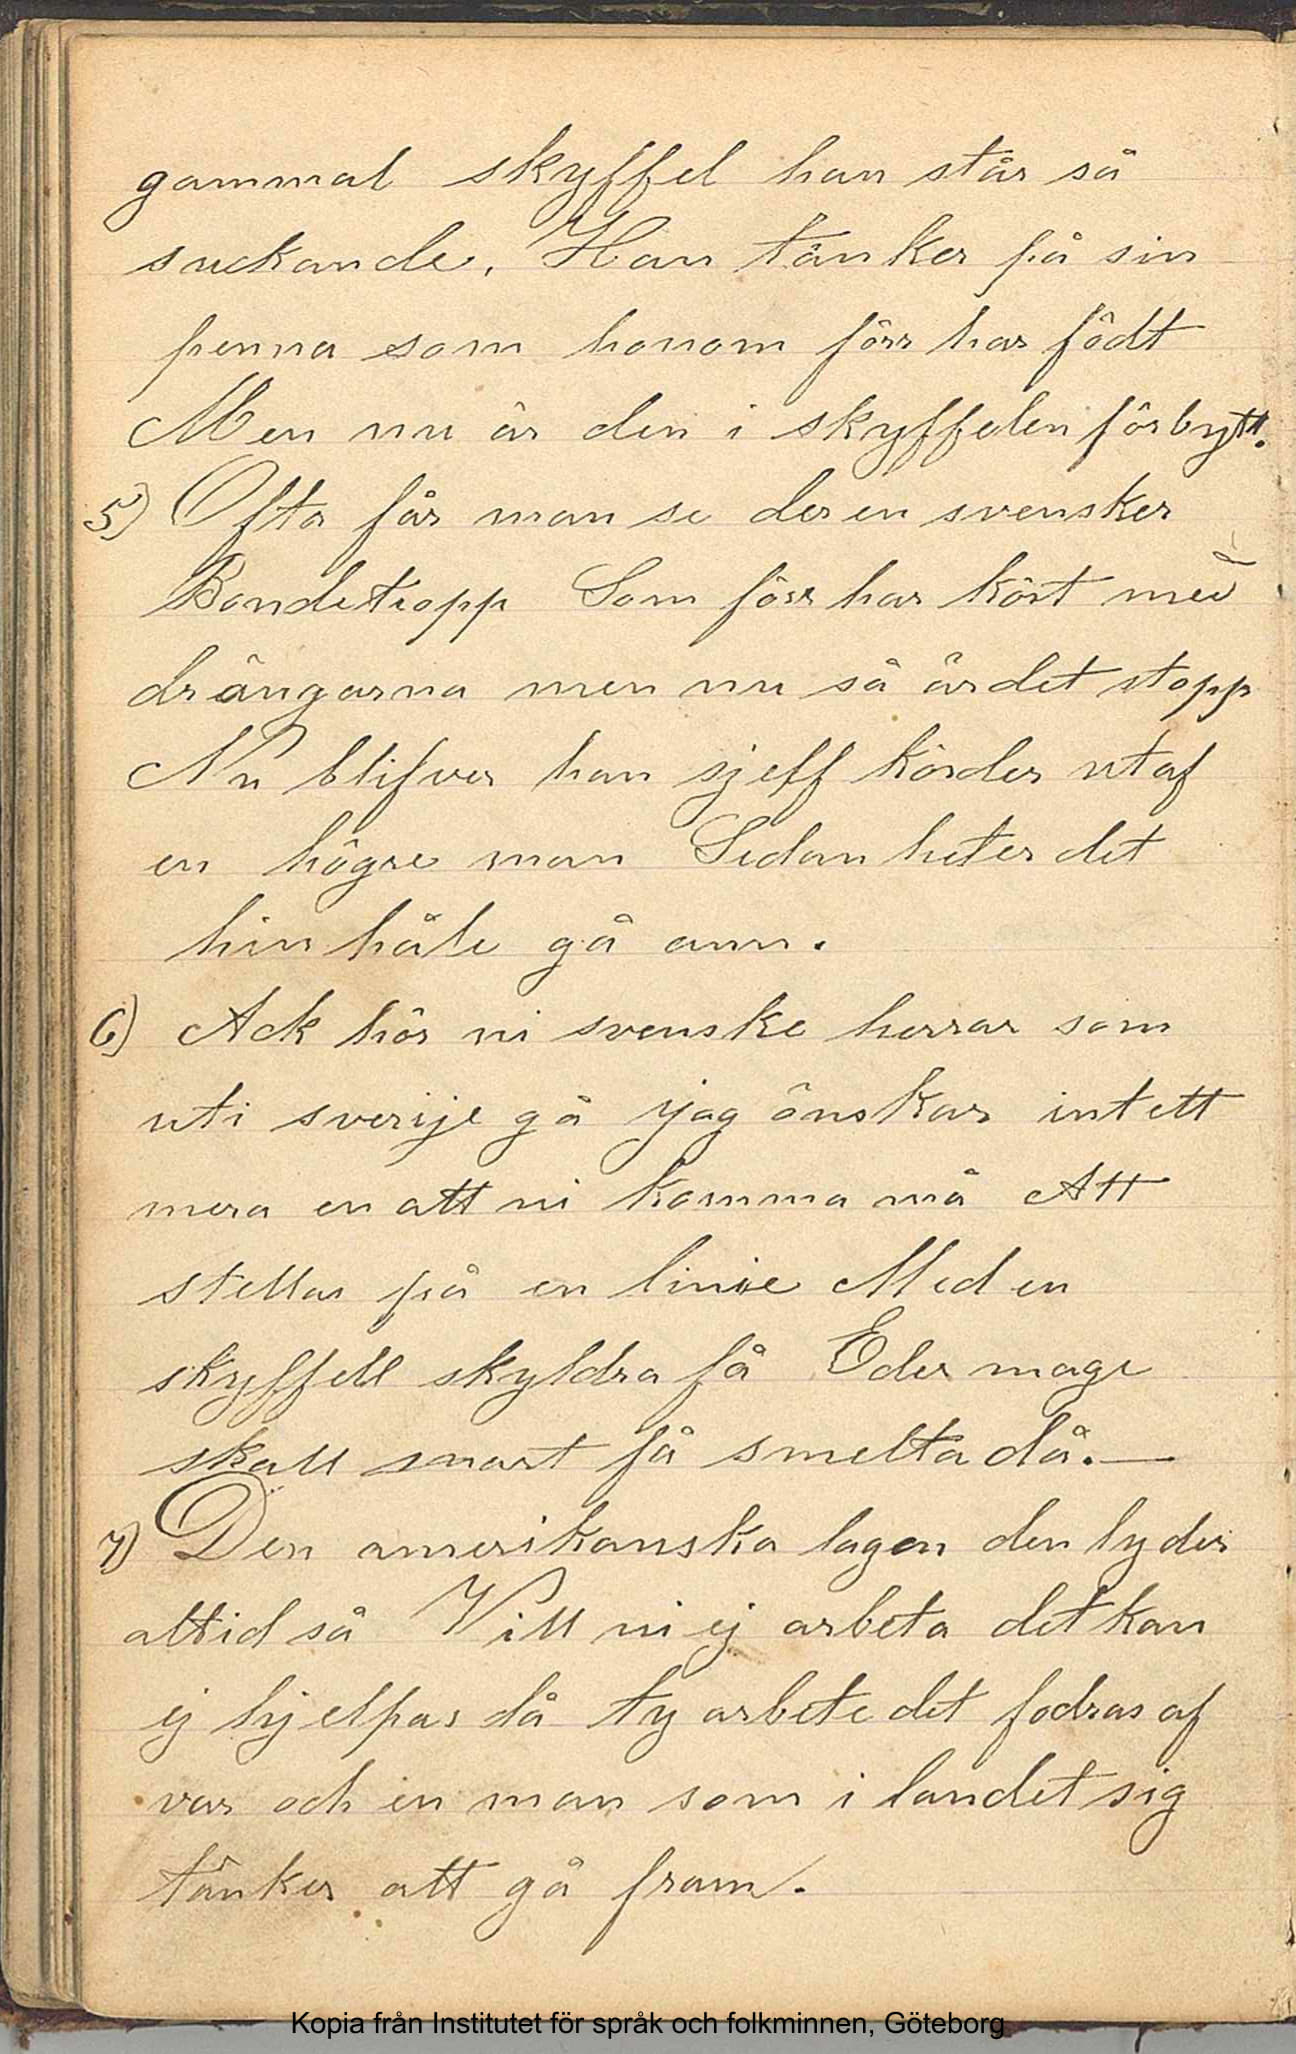 gammal skyffel han står så
suckande, Han tänker på sin
penna som honom förr har födt
Men nu är den i skyffelen förbytt.
5) Ofta får man se der en svensker
Bondetropp Som förr har kört med
drängarna men nu så är det stopp
Nu blifver han sjelf körder utaf
en högre man Sedan heter det
hin håle gå ann.
6) Ack hör ni svenske herrar som
uti sverije gå jag önskar intett
mera en att ni komma må Att
stellas på en linie Med en
skyffell skyldra få Eder mage
skall snart få smelta då. —
7) Den amerikanska lagen den lyder
altid så Vill ni ej arbeta det kan
ej hjelpas då ty arbete det fodras af
var och en man som i landet sig
tänker att gå fram.
Kopia från Institutet för språk och folkminnen, Göteborg